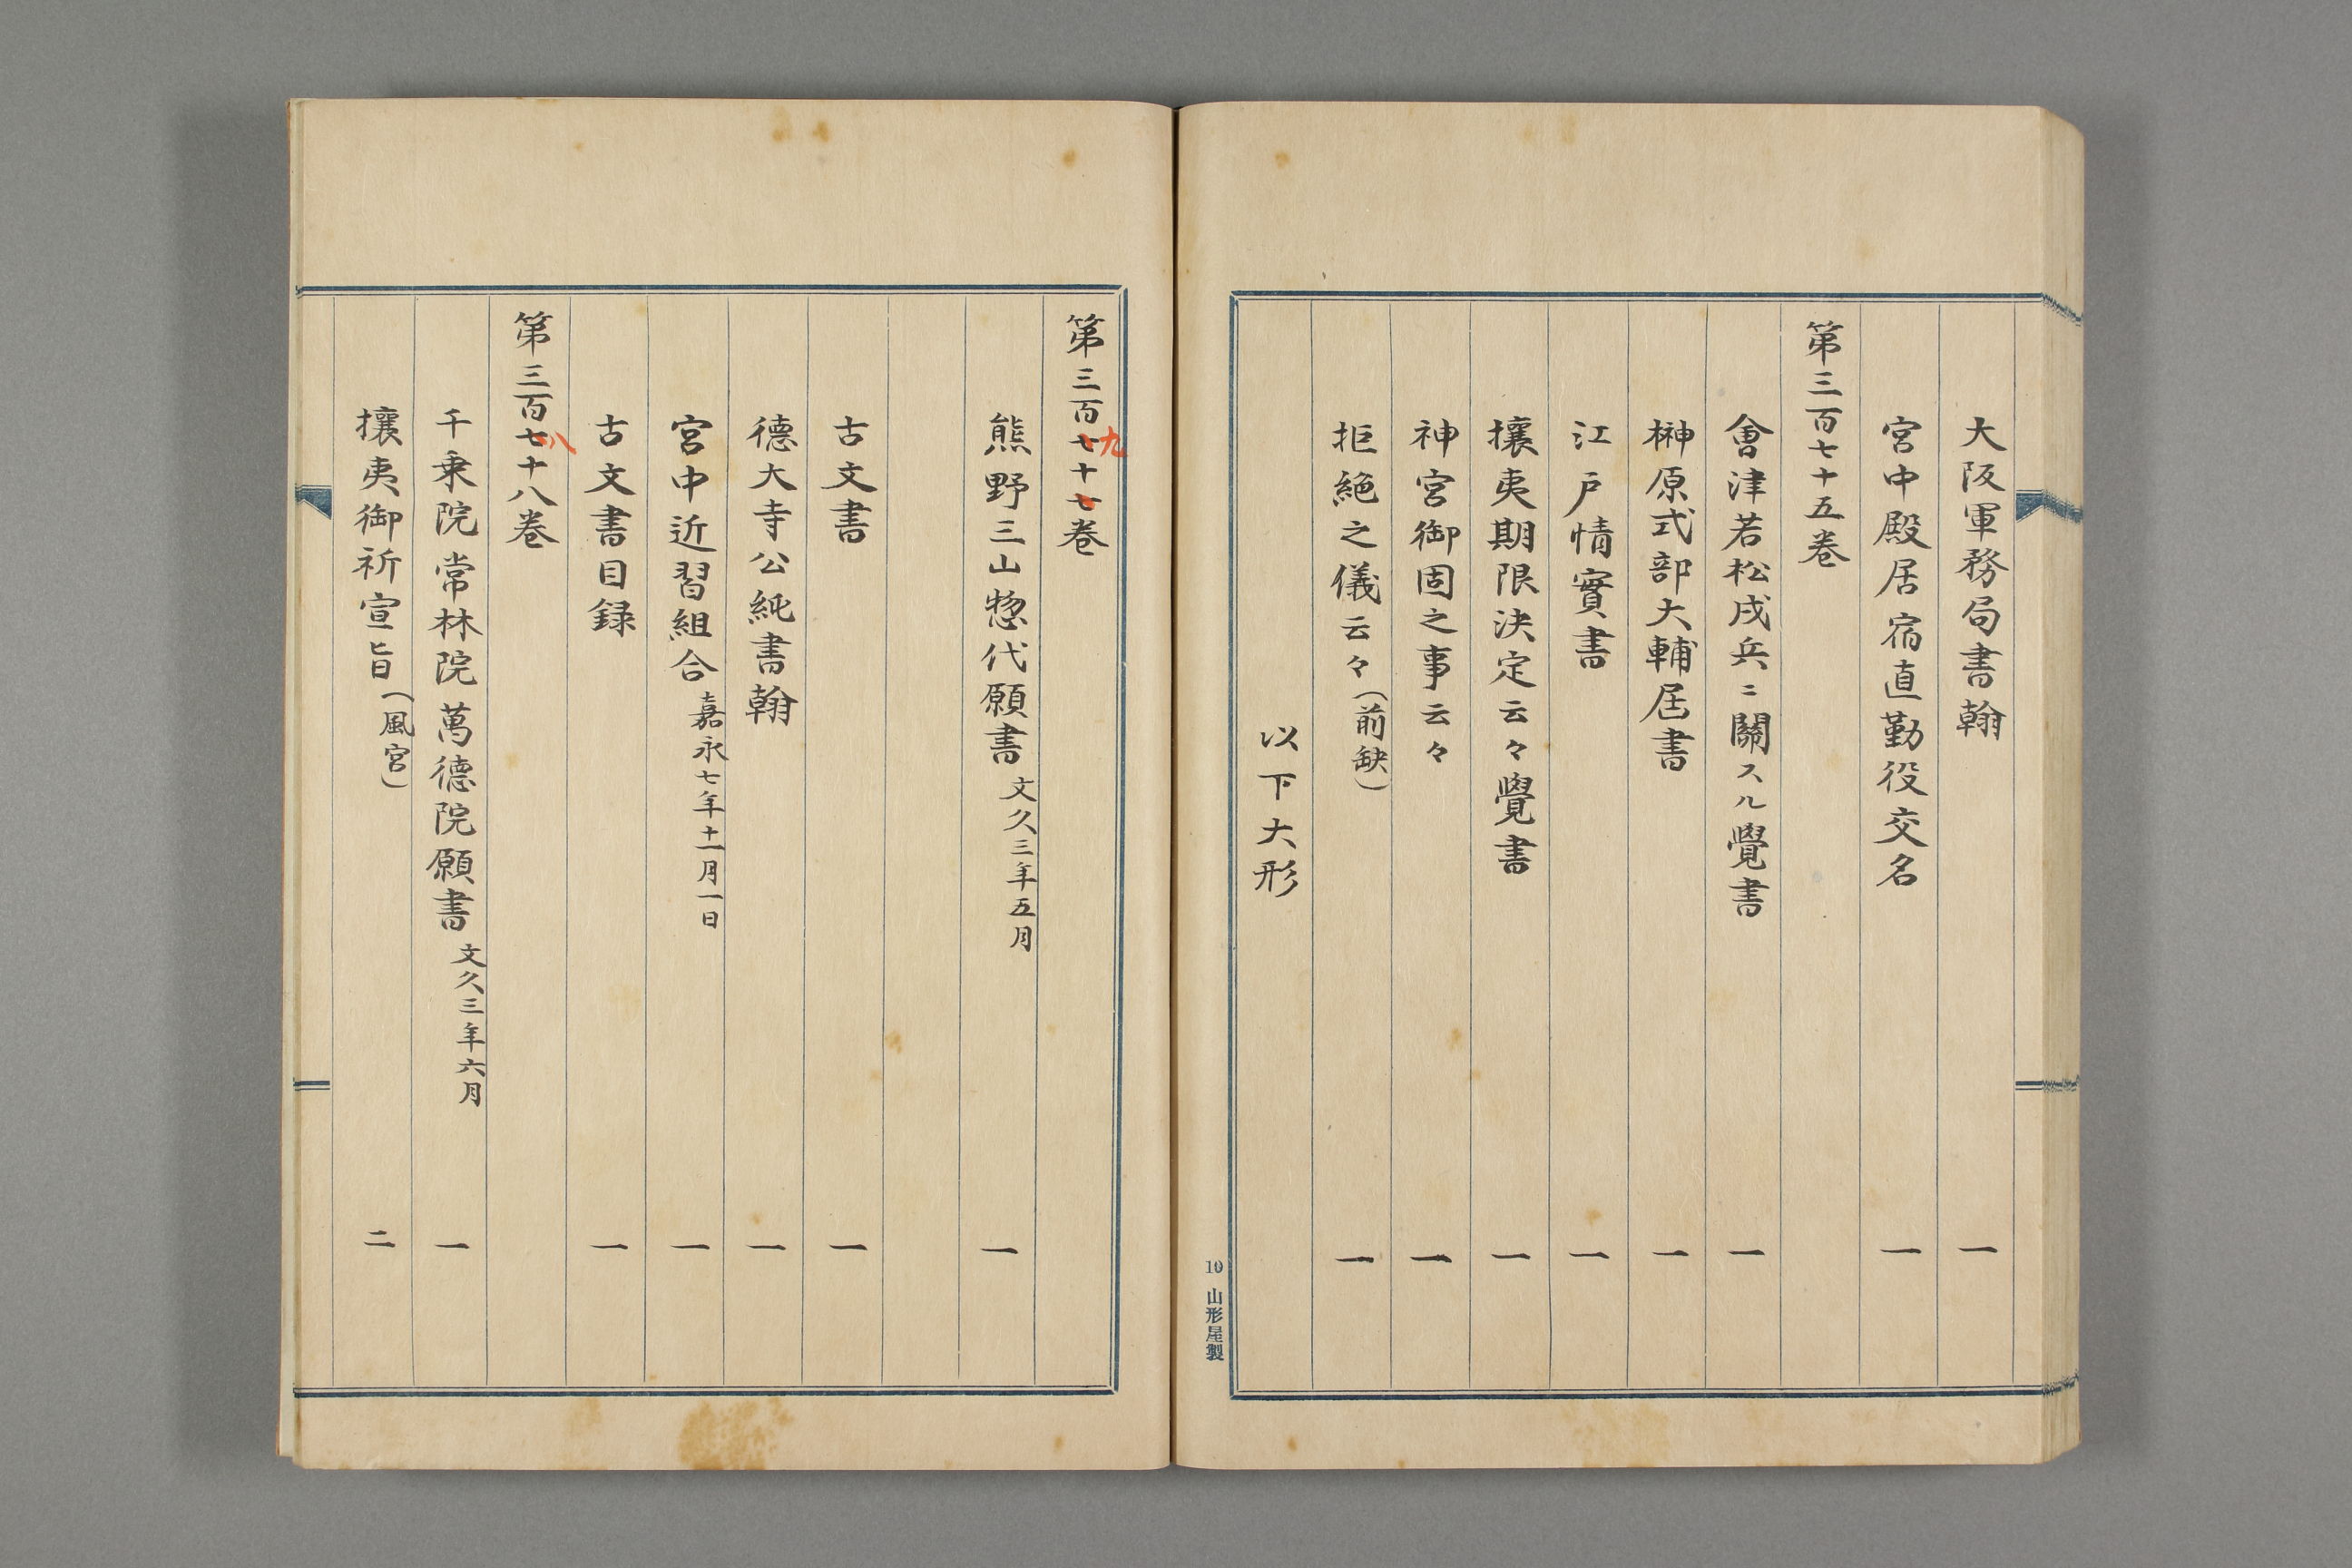 大阪軍務局書翰 一
宮中殿居宿直勤役交名 一
第三百七十五巻
會津若松戍兵ニ關スル覺書 一
榊原式部大輔届書 一
江戸情實書 一
攘夷期限決定云々覺書 一
神宮御固之事云々 一
拒絶之儀云々(前缺) 一
以下大形
10 山形屋製
第三百七九十七巻
熊野三山惣代願書 文久三年五月 一
古文書 一
德大寺公純書翰 一
宮中近習組合 嘉永七年十一月一日 一
古文書目録 一
第三百七八十八巻
千乗院常林院萬德院願書 文久三年六月 一
攘夷御祈宣旨(風宮) 二